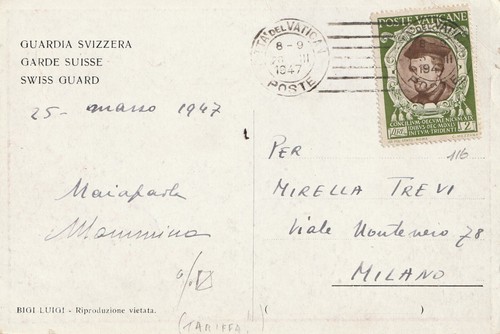 GUARDIA SVIZZERA
GARDE SUISSE
SWISS GUARD
25 - marzo 1947
Mariapaola
Mammina
BIGI LUIGI - Riproduzione vietata.
(TARIFFA
CITTA' DEL VATICANO
8-9
1947
POSTE
POSTE VATICANE
CONCILIUM OECUMENICUM XIX
IDIBUS DEC MDXLV
INITUM TRIDENTI
LIRE 2
116
PER
MIRELLA TREVI
Viale Montenero 78
MILANO